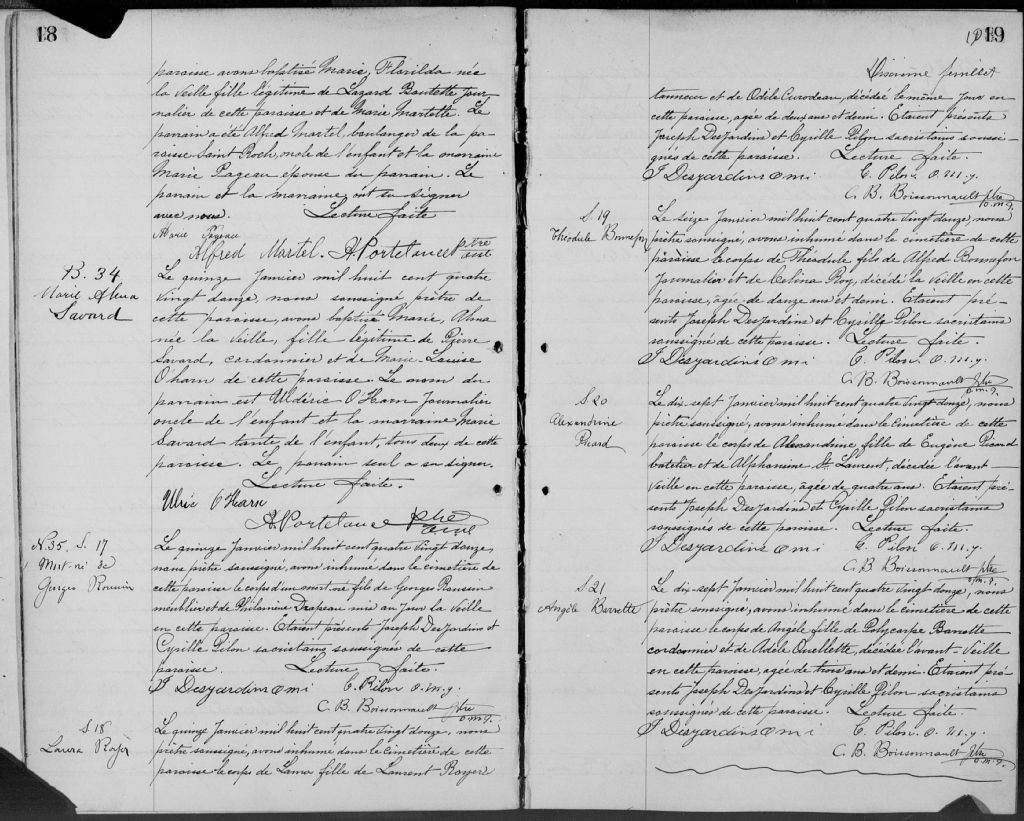 18
paroisse avons baptisé Marie, Florilda née
la veille fille légitime de Lazard Boutette jour-
nalier de cette paroisse et de Marie Martette. Le
parrain a été Alfred Martel, boulanger de la pa-
roisse Saint Roch, oncle de l'enfant et la marraine
Marie Pageau épouse du parrain. Le
parrain et la marraine ont su signer
avec nous. Lecture faite
Marie Pageau
Alfred Martel. A. Portelance ptre curé
B. 34
Marie Alma
Savard
Le quinze Janvier mil huit cent quatre
vingt douze, nous soussigné, prêtre de
cette paroisse, avons baptisé Marie, Alma
née la veille, fille légitime de Pierre
Savard, cordonnier et de Marie-Louise
O'harn de cette paroisse. Le nom du
parrain est Uldéric O'Harn Journalier
oncle de l'enfant et la marraine Marie
Savard tante de l'enfant, tous deux de cette
paroisse. Le parrain seul a su signer.
Lecture faite.
Ulric O'Harn
A. Portelance ptre curé
N. 35. S. 17
Mort-né de
Georges
Le quinze Janvier mil huit cent quatre vingt douze,
nous prêtre soussigné, avons inhumé dans le cimetière de
cette paroisse le corps d'un mort-né fils de Georges
meublier et de Philomène Drapeau mis au jour la veille
en cette paroisse. Etaient présents Joseph DesJardins et
Cyrille Pilon sacristains soussignés de cette
paroisse. Lecture faite.
J Desjardins omi C. Pilon O.M.J.
C. B. Boissonnault ptre o.m.J.
S 18
Laura
Le quinze Janvier mil huit cent quatre vingt douze, nous
prêtre soussigné, avons inhumé dans le cimetière de cette
paroisse le corps de Laura fille de Laurent Royer
19
feuillet
tanneur et de Odile Curodeau, décédé le même jour en
cette paroisse, agée de deux ans et demi. Etaient présents
Joseph DesJardins et Cyrille Pilon sacristains soussi-
gnés de cette paroisse. Lecture faite.
J Desjardins omi C. Pilon. O.M.J.
C. B. Boissonnault ptre o.m.J.
S. 19
Théodule Bonnefon
Le seize Janvier mil huit cent quatre vingt douze, nous
prêtre soussigné, avons inhumé dans le cimetière de cette
paroisse le corps de Théodule fils de Alfred Bonnefon
Journalier et de Célina Roy, décédé la veille en cette
paroisse, agée de douze ans et demi. Etaient pré-
sents Joseph DesJardins et Cyrille Pilon sacristains
soussigné de cette paroisse. Lecture faite.
J Desjardins omi C. Pilon. O.M.J.
C. B. Boissonnault ptre o.m.J.
S 20
Alexandrine
Picard
Le dix-sept Janvier mil huit cent quatre vingt douze, nous
prêtre soussigné, avons inhumé dans le cimetière de cette
paroisse le corps de Alexandrine fille de Eugène Picard
batelier et de Alphonsine St Laurent, décédée l'avant-
veille en cette paroisse, agée de quatre ans. Etaient pré-
sent Joseph DesJardins et Cyrille Pilon sacristains
soussignés de cette paroisse. Lecture faite.
J Desjardins omi C. Pilon O.M.J.
C. B Boissonnault ptre o.m.J.
S 21
Angèle Barrette
Le dix-sept Janvier mil huit cent quatre vingt-douze, nous
prêtre soussigné, avons inhumé dans le cimetière de cette
paroisse le corps de Angèle fille de Polycarpe Barrette
cordonnier et de Adèle Ouellette, décédée l'avant-veille
en cette paroisse, agée de trois ans et demi. Etaient pré-
sents Joseph DesJardins et Cyrille Pilon sacristains
soussignés de cette paroisse. Lecture faite.
J Desjardins omi C. Pilon O.M.J.
C. B. Boissonnault ptre o.m.J.